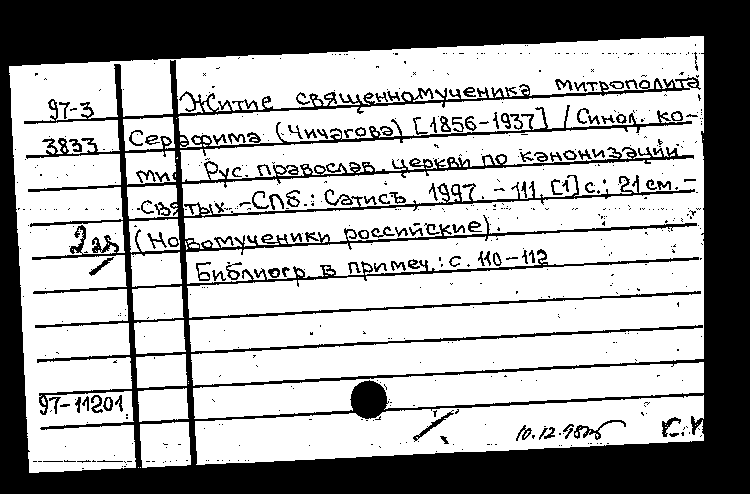 97-3 Житие священномученика митрополита
3833 Серафима (Чичагова) [1856-1937] / Синод. ко-
мис. Рус. православ. церкви по канонизации
святых. - СПб.: Сатисъ, 1997. - 111, [1] с.; 21 см. -
2 экз (Новомученики российские).
Библиогр. в примеч.: с. 110-112
97-11201
10.12.98